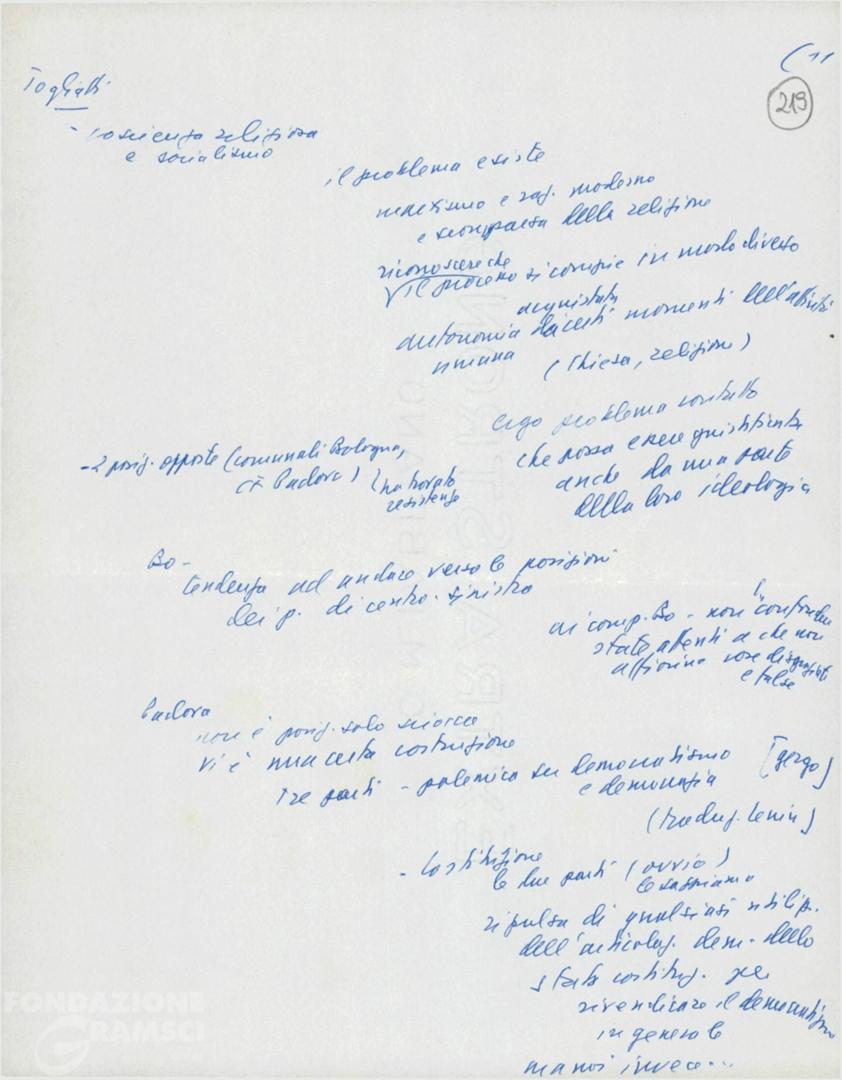 (11
219
Togliatti
- coscienza religiosa
e socialismo
il problema esiste
marxismo e rag. moderno
e scomparsa della religione
riconoscere che
il processo si compie in modo diverso
acquistata
autonomia da certi momenti dell'attività
umana (Chiesa, religione)
ergo problema contatto
che possa essere giustificata
anche da una parte
della loro ideologia
- 2 posiz. opposte (comunali Bologna,
Padova) (ha trovato
resistenze
Bo -
tendenza ad andare verso le posizioni
dei p. di centro-sinistra
ai comp. Bo - non confondere
state attenti a che non
affiorino cose
e false
Padova
non è posiz. solo sciocca
vi è una certa costruzione
tre parti - polemica su democratismo [gergo]
e democrazia
(traduz. Lenin)
- Costituzione
le due parti (ovvio)
lo sappiamo
ripulsa di qualsiasi utiliz.
dell'articolaz. dem. dello
stato costituz. per
rivendicare il democratismo
in generale
ma noi invece...
FONDAZIONE
GRAMSCI